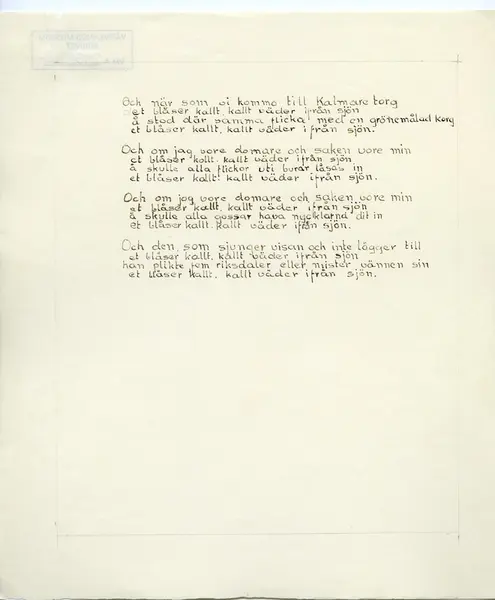 Och när som vi kommo till Kalmare torg
det blåser kallt, kallt väder ifrån sjön
å stod där samma flicka med en grönemålad korg
et blåser kallt, kallt väder ifrån sjön.
Och om jag vore domare och saken vore min
et blåser kallt, kallt väder ifrån sjön
å skulle alla flickor uti burar låsas in
et blåser kallt, kallt väder ifrån sjön.
Och om jag vore domare och saken vore min
et blåser kallt, kallt väder ifrån sjön
å skulle alla gossar hava nycklarna dit in
et blåser kallt, kallt väder ifrån sjön.
Och den, som sjunger visan och inte lägger till
et blåser kallt, kallt väder ifrån sjön
han plikte fem riksdaler eller mister vännen sin
et blåser kallt, kallt väder ifrån sjön.